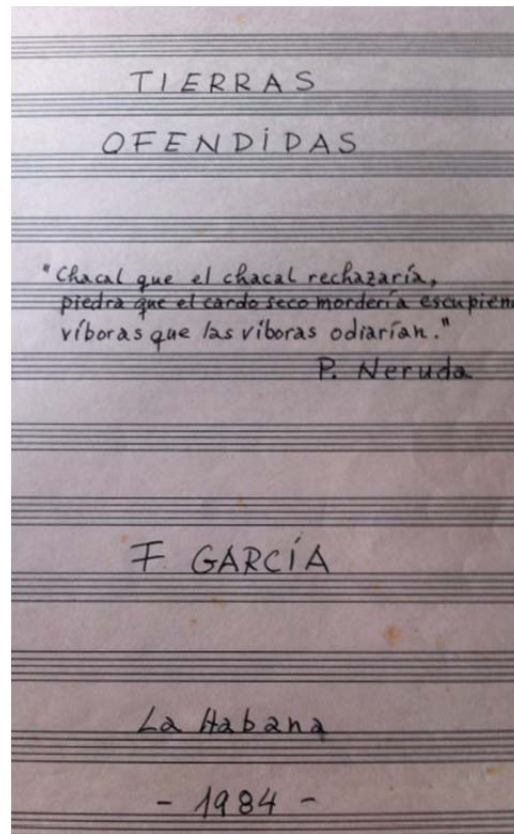 TIERRAS
OFENDIDAS
"Chacal que el chacal rechazaría,
piedra que el cardo seco mordería escupien
víboras que las víboras odiarían."
P. Neruda
F GARCÍA
La Habana
- 1984 -